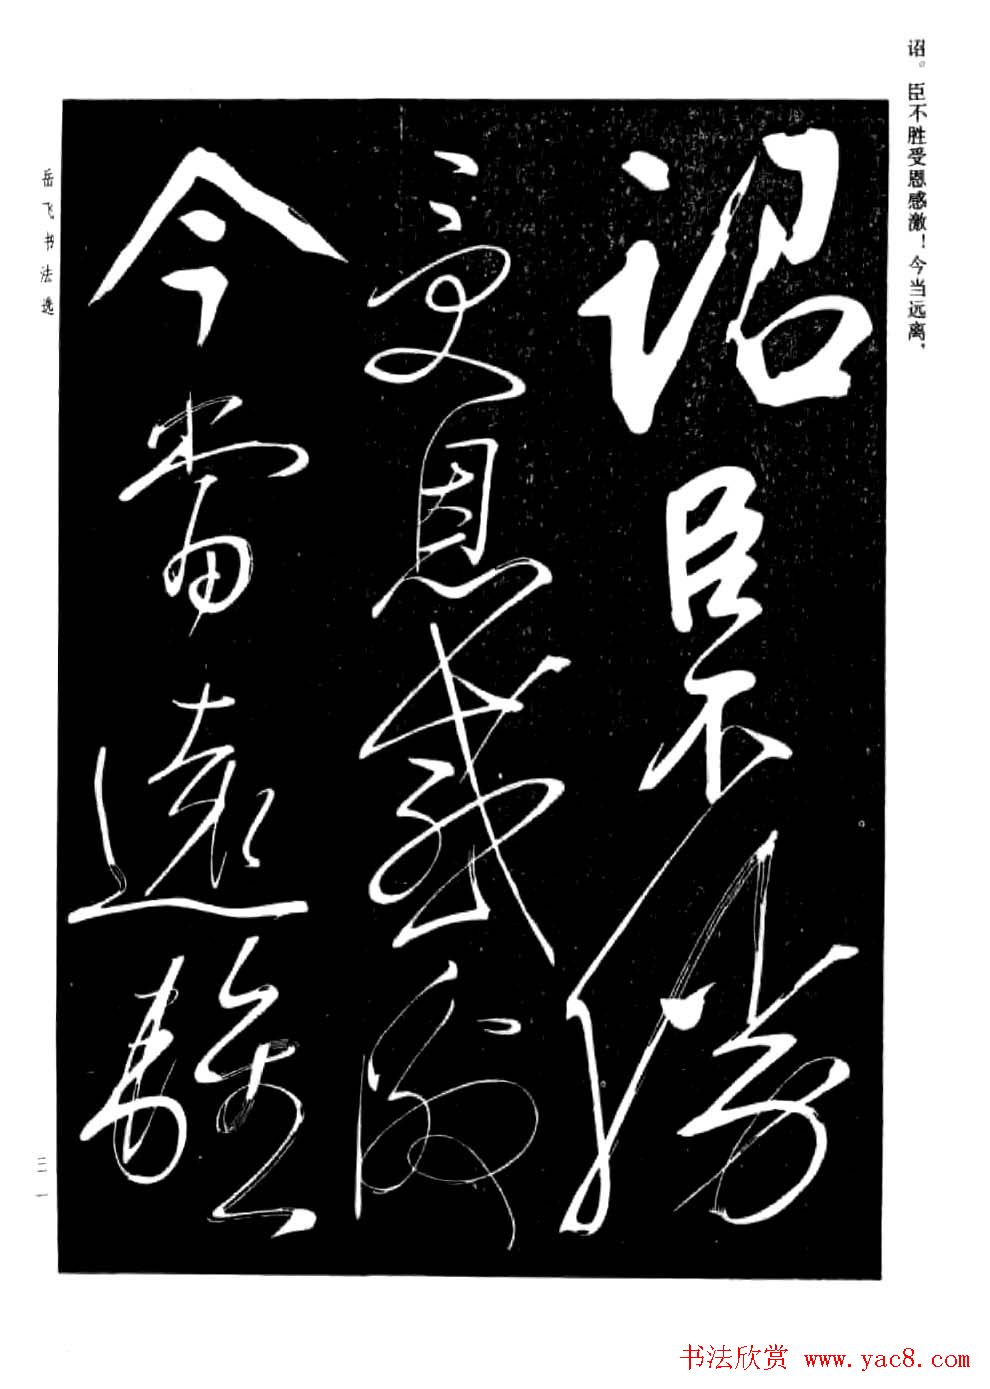 诏。臣不胜受恩感激！今当远离，
詔臣不勝
受恩感激
今當遠離
岳飞书法选
三一
书法欣赏 www.yac8.com